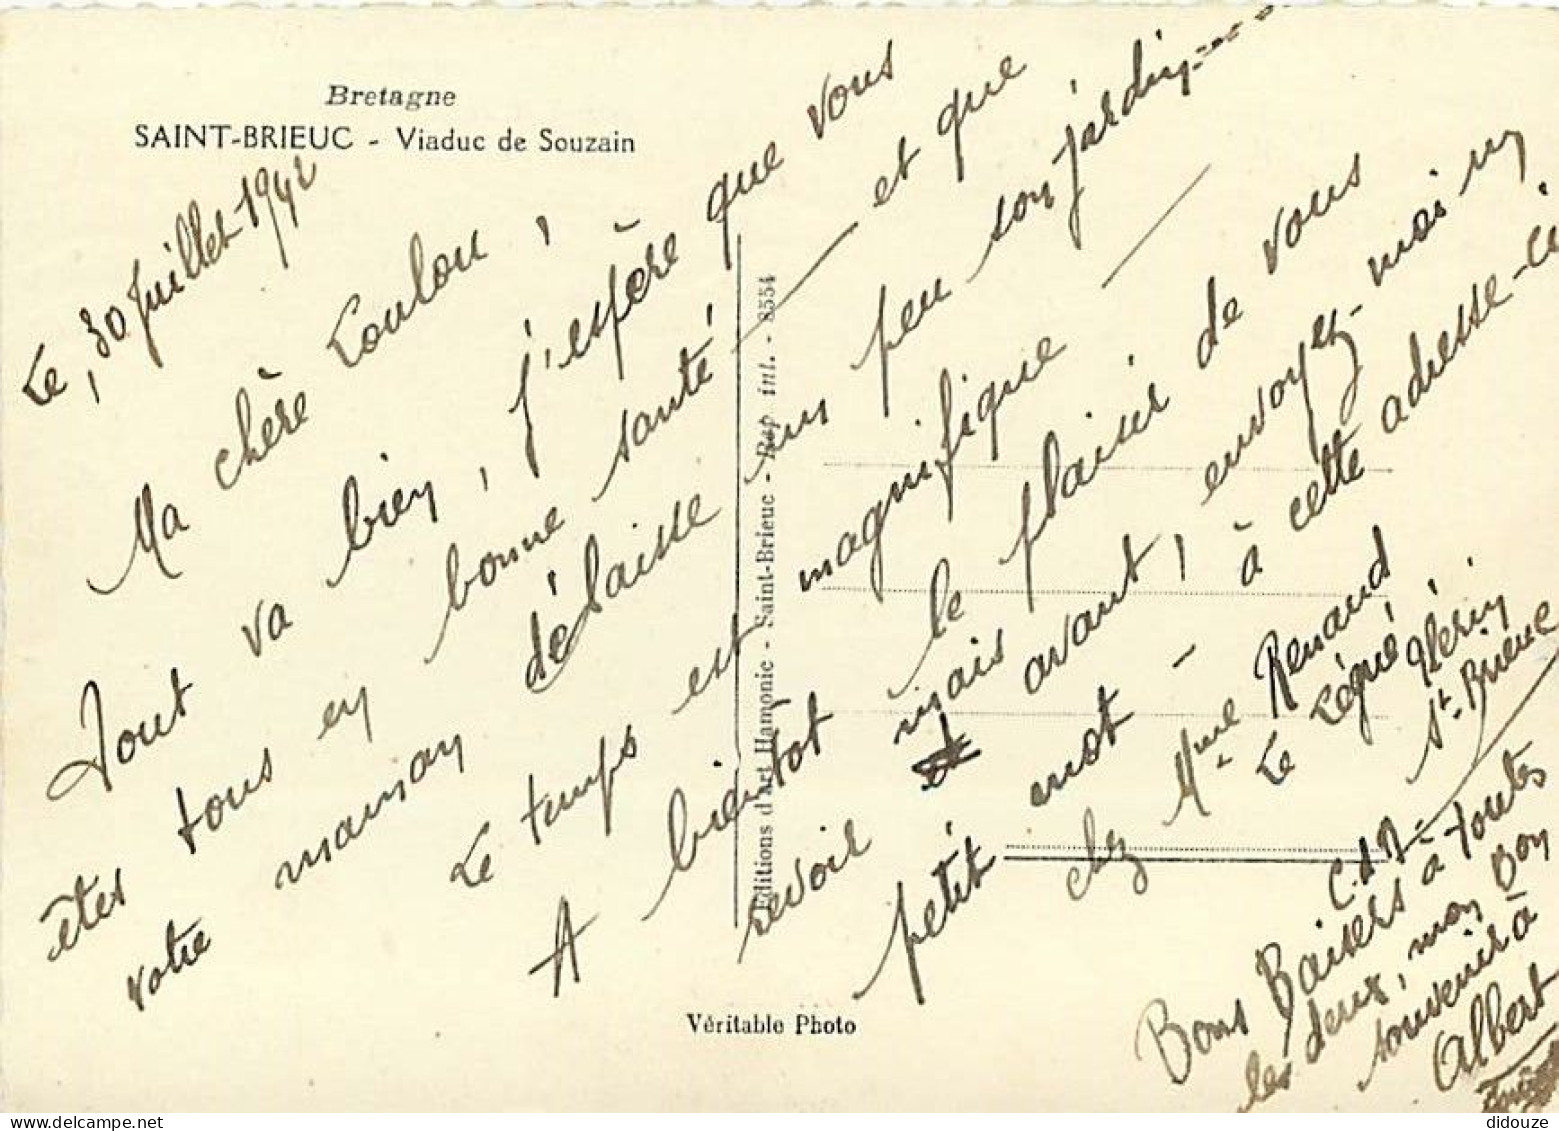 Bretagne
SAINT-BRIEUC - Viaduc de Souzain
Le, 30 Juillet 1942
Ma chère Loulou,
Tout va bien, j'espère que vous
êtes tous en bonne santé, et que
votre maman délaisse un peu son jardin----
Le temps est magnifique
A bientôt le plaisir de vous
revoir mais avant, envoyez-moi un
petit mot - à cette adresse-ci
chez Mme Renaud
Le Légué Plérin
St-Brieuc
C.d.N-
Bons Baisers à toutes
les deux, mon Bon
souvenir à
Albert
Editions d'art Hamonic - Saint-Brieuc - Rep int. - 8554
Véritable Photo
didouze